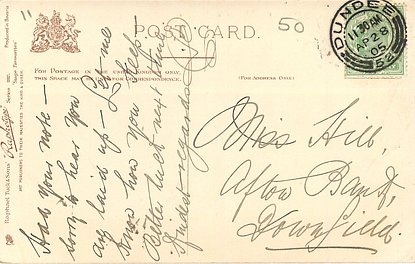 11
POST CARD.
50
DUNDEE
11 30 AM
AP 28
05
52
FOR POSTAGE IN THE UNITED KINGDOM ONLY, THIS SPACE MAY
(FOR ADDRESS ONLY)
Produced in Bavaria
Raphael Tuck & Sons'
Series
ART PUBLISHERS TO THEIR MAJESTIES THE KING & QUEEN.
Had your note –
sorry to hear you
are laid up – Let me
know how you feel –
Better luck next time
Kindest regards
Miss Hill,
Afton Bank,
Downfield.